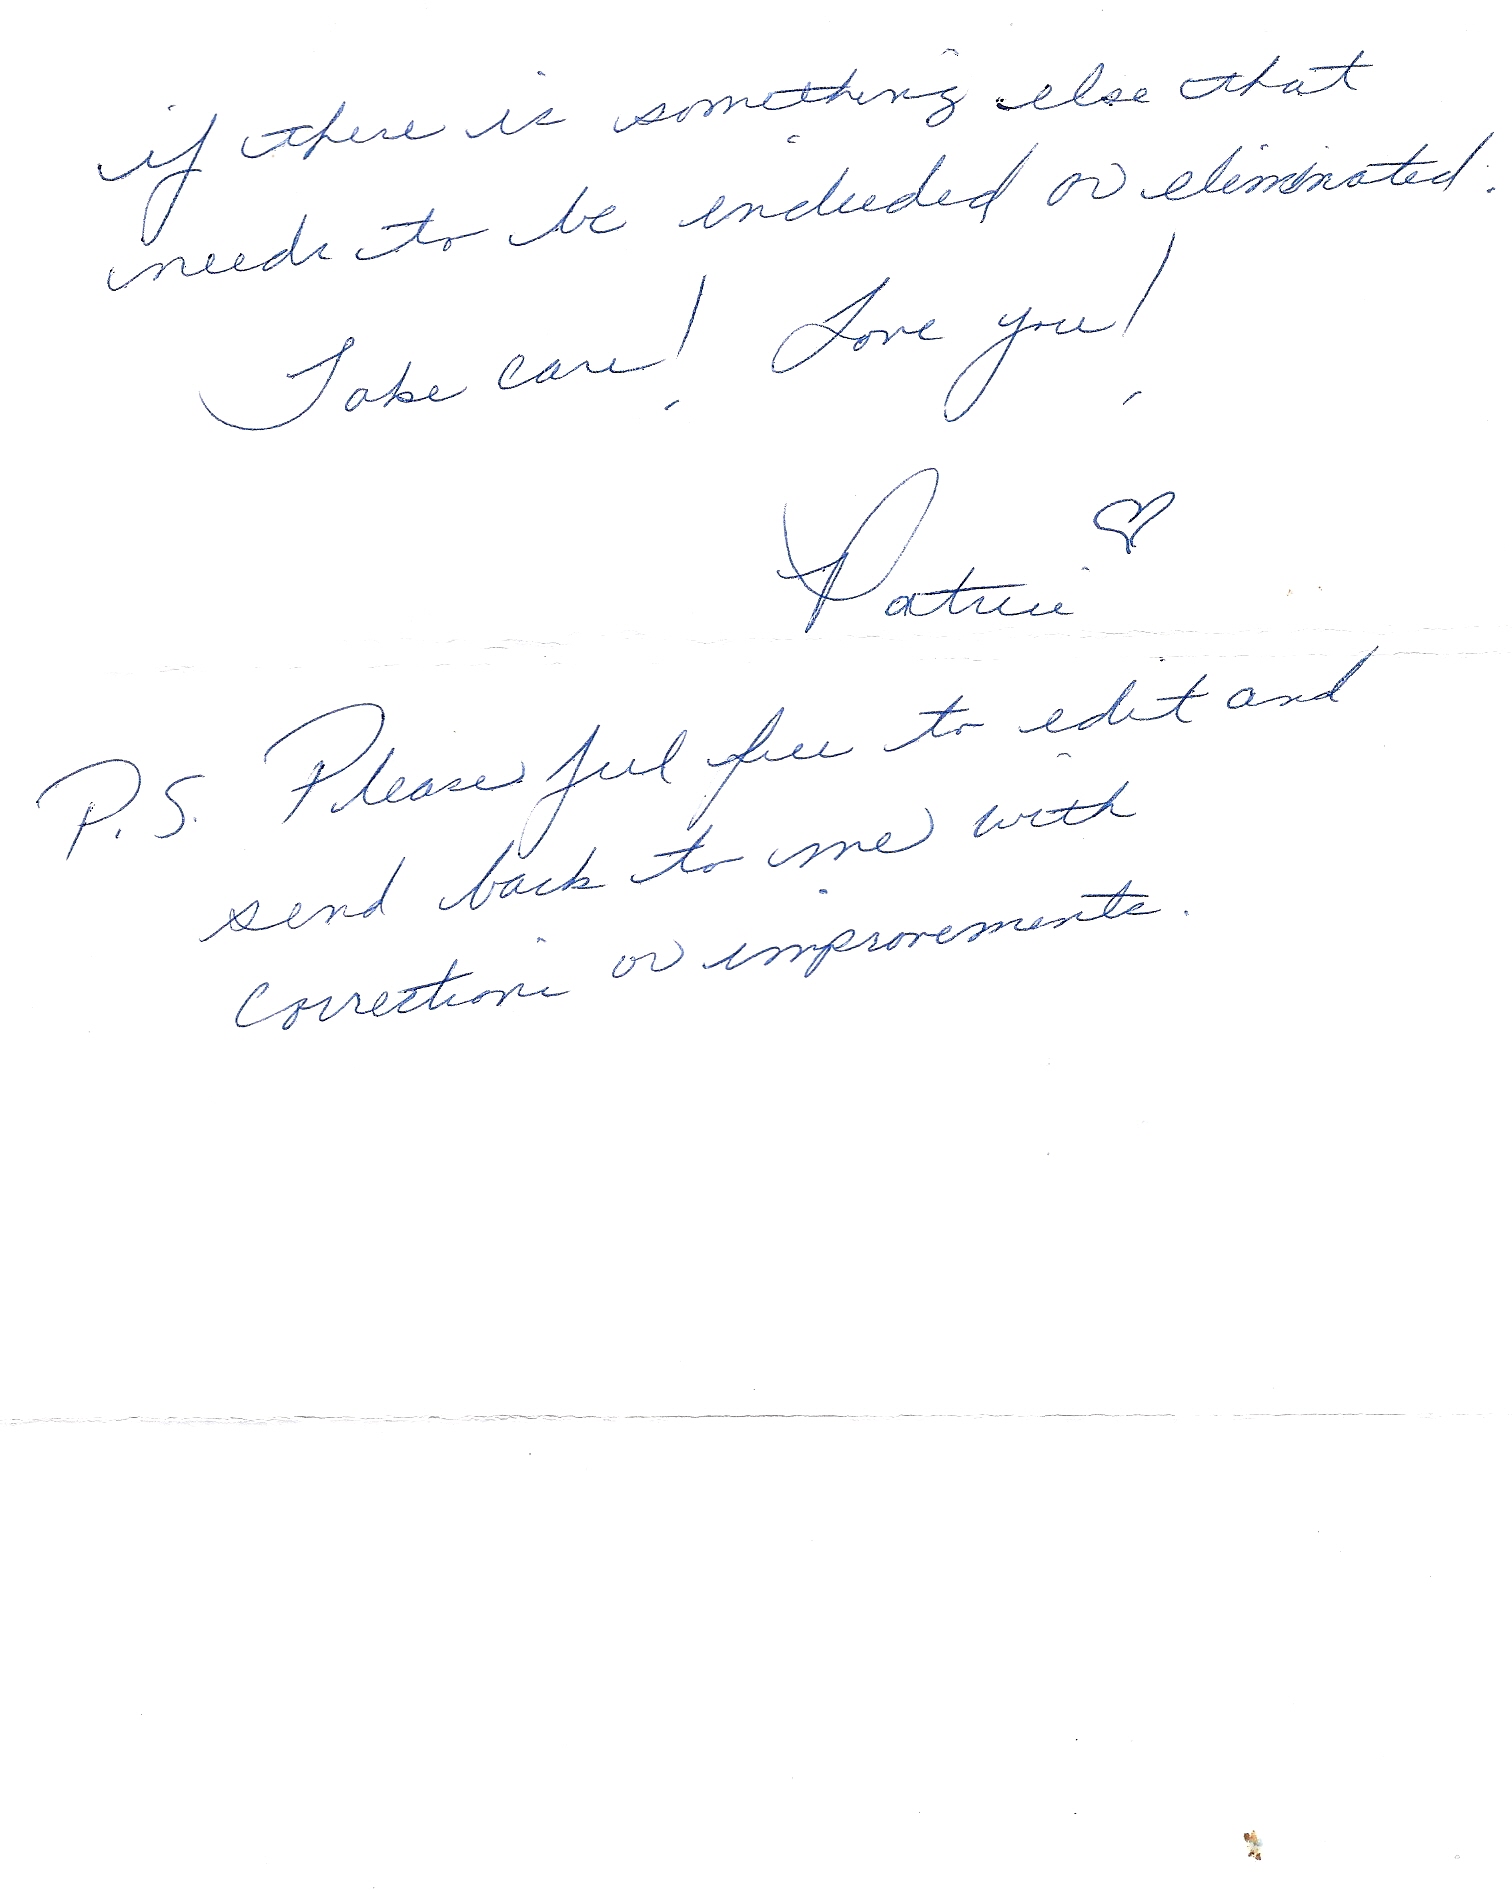 if there is something else that
needs to be included or eliminated.
Take care! Love you!
Patrici ♡
P.S. Please feel free to edit and
send back to me with
corrections or improvements.